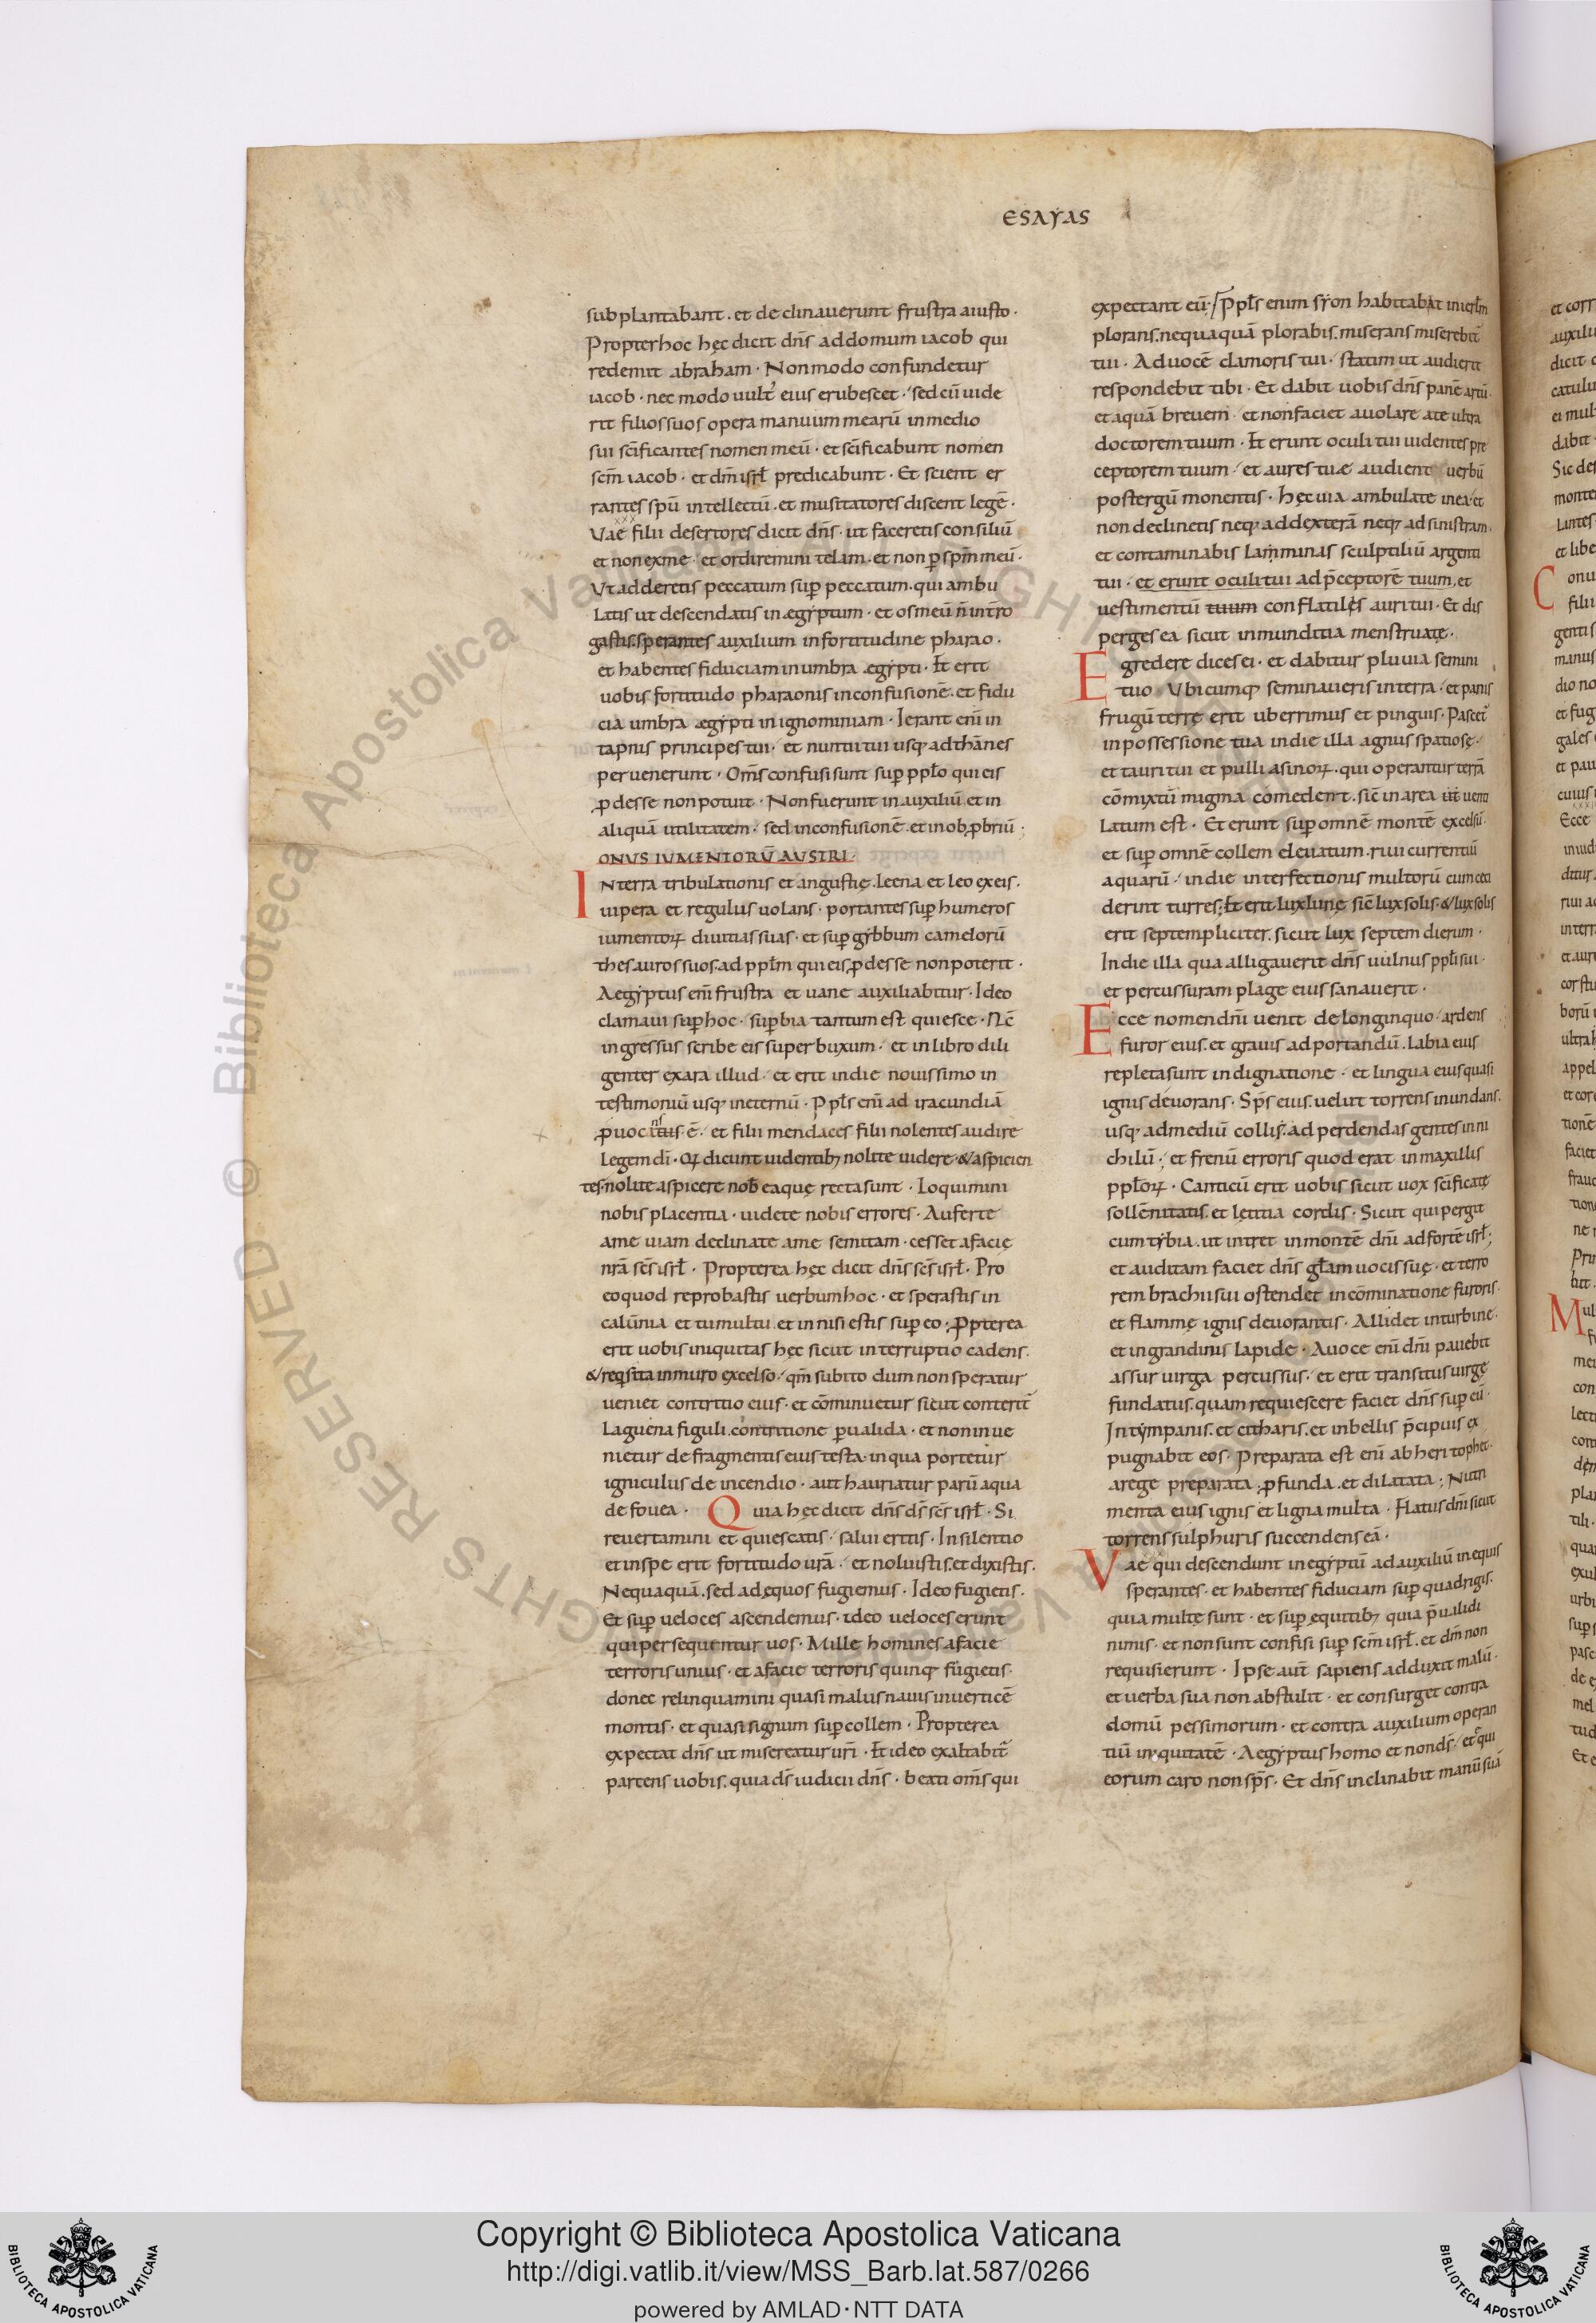 ESAYAS
subplantabant. et declinauerunt frustra aiusto.
Propterhoc hęc dicit dñs addomum iacob qui
redemit abraham. Nonmodo confundetur
iacob. nec modo uult' eius erubescet. sedcū uide
rit filiossuos opera manuum mearū inmedio
sui scīficantes nomen meū. et scīficabunt nomen
scm̄ iacob. et dm̄ isrl̄ predicabunt. Et scient er
rantes spū intellectū. et musitatores discent legē.
Vae filii desertores dicit dñs. ut faceretis consiliū
et non exme. et ordiremini telam. et non p̱ spm̄ meū.
Vt adderetis peccatum sup̱ peccatum. qui ambu
latis ut descendatis in ægyptum. et os meū ñ int̄ro
gastis. sperantes auxilium infortitudine pharao.
et habentes fiduciam inumbra ægypti. Et erit
uobis fortitudo pharaonis inconfusionē. et fidu
cia umbræ ægypti in ignominiam. Ierant enī in
tapnis principes tui. et nuntii tui usq; adthānes
peruenerunt. Om̄s confusi sunt sup̱ ppl̄o qui eis
p̱desse non potuit. Non fuerunt in auxiliū. et in
aliquā utilitatem. sed inconfusionē. et in obp̱briū.
ONVS IVMENTORŪ AVSTRI.
INterra tribulationis et angustię. leena et leo exeis.
uipera et regulus uolans. portantes sup̱ humeros
iumentoꝝ diuitias suas. et sup̱ gybbum camelorū
thesauros suos. ad ppl̄m qui eis p̱desse non poterit.
Aegyptus enī frustra et uane auxiliabitur. Ideo
clamaui sup̱ hoc. sup̱bia tantum est quiesce. Nc̄
ingressus scribe eis super buxum. et in libro dili
genter exara illud. et erit indie nouissimo in
testimoniū usq; ineternū. Ppl̄s enī ad iracundiā
p̱uocans ē. et filii mendaces filii nolentes audire
legem dī. Qꝝ dicunt uidentib; nolite uidere. & aspicien
tes. nolite aspicere nob̄ eaquę recta sunt. Loquimini
nobis placentia. uidete nobis errores. Auferte
ame uiam declinate ame semitam. cesset afacię
nrā sc̄s isrl̄. Propterea hęc dicit dñs sc̄s isrl̄. Pro
eo quod reprobastis uerbum hoc. et sperastis in
calūnia et tumultu. et innisi estis sup̱ eo. p̱pterea
erit uobis iniquitas hęc sicut interruptio cadens.
& reqsita inmuro excelso. qm̄ subito dum non speratur
ueniet contritio eius. et cōminuetur sicut conterit̄
laguena figuli. contritione p̱ualida. et non inue
nietur de fragmentis eius testa. in qua portetur
igniculus de incendio. aut hauriatur parū aqua
de fouea. Quia hęc dicit dñs ds̄ sc̄s isrl̄. Si
reuertamini et quiescatis. salui eritis. In silentio
et inspe erit fortitudo urā. et noluistis. et dixistis.
Nequaquā. sed ad ęquos fugiemus. Ideo fugietis.
Et sup̱ ueloces ascendemus. ideo ueloces erunt
qui persequentur uos. Mille homines afacie
terroris unius. et afacie terroris quinq; fugietis.
donec relinquamini quasi malus nauis inuerticē
montis. et quasi signum sup̱ collem. Propterea
expectat dñs ut misereatur uri. Et ideo exaltabit̄
partens uobis. quia ds̄ iudicii dñs. beati om̄s qui
expectant eū. Ppl̄s enim syon habitabit in ierlm̄
plorans. nequaquā plorabis. miserans miserebit̄
tui. Aduocē clamoris tui. statim ut audierit
respondebit tibi. Et dabit uobis dñs panē artū.
et aquā breuem. et non faciet auolare ate ultra
doctorem tuum. Et erunt oculi tui uidentes pre
ceptorem tuum. et aures tuæ audient uerbū
postergū monentis. hęc uia ambulate inea. et
non declinetis neq; addexterā neq; adsinistram.
et contaminabis lamminas sculptiliū argenti
tui. et erunt oculi tui ad p̄ceptorē tuum, et
uestimentū tuum conflatilęs auri tui. Et dis
perges ea sicut inmunditia menstruatę.
Egredere dices ei. et dabitur pluuia semini
tuo. Vbicumq; seminaueris interra. et panis
frugū terrę erit uberrimus et pinguis. Pascet'
inpossessione tua indie illa agnus spatiosę.
et tauri tui et pulli asinoꝝ. qui operantur terrā
cōmixtū migma comedent. sic̄ in area ut̄ uenti
latum est. Et erunt sup̱ omnē montē excelsū.
et sup̱ omnē collem eleuatum. riui currentiū
aquarū. indie interfectionis multorū cum ceci
derint turres. Et erit lux lunę sic̄ lux solis. & lux solis
erit septempliciter. sicut lux septem dierum.
Indie illa qua alligauerit dñs uulnus ppl̄i sui.
et percussuram plage eius sanauerit.
Ecce nomen dñi uenit de longinquo. ardens
furor eius. et grauis ad portandū. labia eius
repleta sunt indignatione. et lingua eius quasi
ignis deuorans. Sps̄ eius. uelut torrens inundans.
usq; admediū collis. ad perdendas gentes in ni
chilū. et frenū erroris quod erat inmaxillis
ppl̄oꝝ. Canticū erit uobis sicut uox scīficatę
sollēnitatis. et lętitia cordis. Sicut qui pergit
cum tybia. ut intret inmontē dñi ad fortē isrl̄.
et auditam faciet dñs gl̄am uocis suę. et terro
rem brachii sui ostendet incōminatione furoris.
et flammę ignis deuorantis. Allidet inturbine.
et ingrandinis lapide. Auoce enī dñi pauebit
assur uirga percussus. et erit transitus uirgę
fundatus. quam requiescere faciet dñs sup̱ eū.
In tympanis. et citharis. et inbellis p̄cipuis ex
pugnabit eos. Preparata est enī ab heri tophet.
arege preparata. p̱funda. et dilatata. Nutri
menta eius ignis et ligna multa. Flatus dñi sicut
torrens sulphuris succendens eā.
Vae qui descendunt inegyptū ad auxiliū inequis
sperantes. et habentes fiduciam sup̱ quadrigis.
quia multę sunt. et sup̱ equitib; quia p̄ualidi
nimis. et non sunt confisi sup̱ scm̄ isrl̄. et dm̄ non
requisierunt. Ipse aut̄ sapiens adduxit malū.
et uerba sua non abstulit. et consurget contra
domū pessimorum. et contra auxilium operan
tiū iniquitatē. Aegyptus homo et non ds̄. et equi
eorum caro non sps̄. Et dñs inclinabit manū suā
Copyright © Biblioteca Apostolica Vaticana
http://digi.vatlib.it/view/MSS_Barb.lat.587/0266
powered by AMLAD·NTT DATA